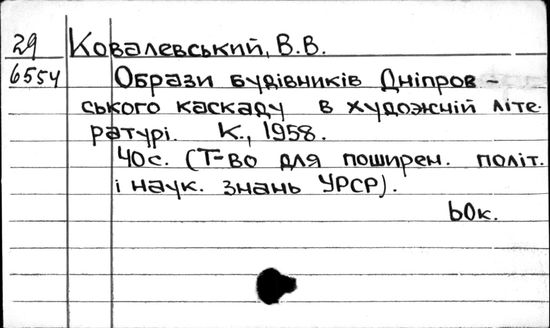 29
6554
Ковалевський, В.В.
Образи будівників Дніпров-
ського каскаду в художній літе-
ратурі. К., 1958.
40с. (Т-во для поширен. політ.
і наук. знань УРСР).
60к.